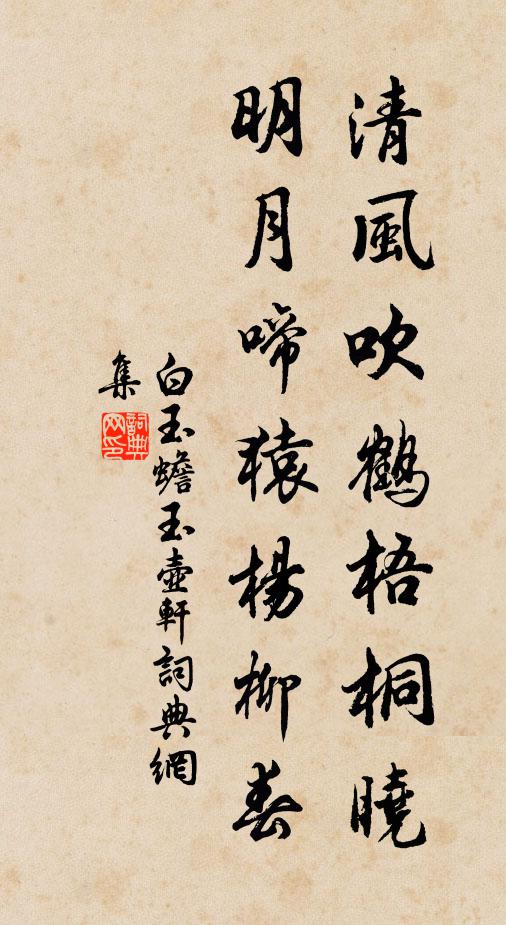 清風吹鶴梧桐曉
明月啼猿楊柳春
白玉蟾玉壺軒詞典網
集
詞典
网印